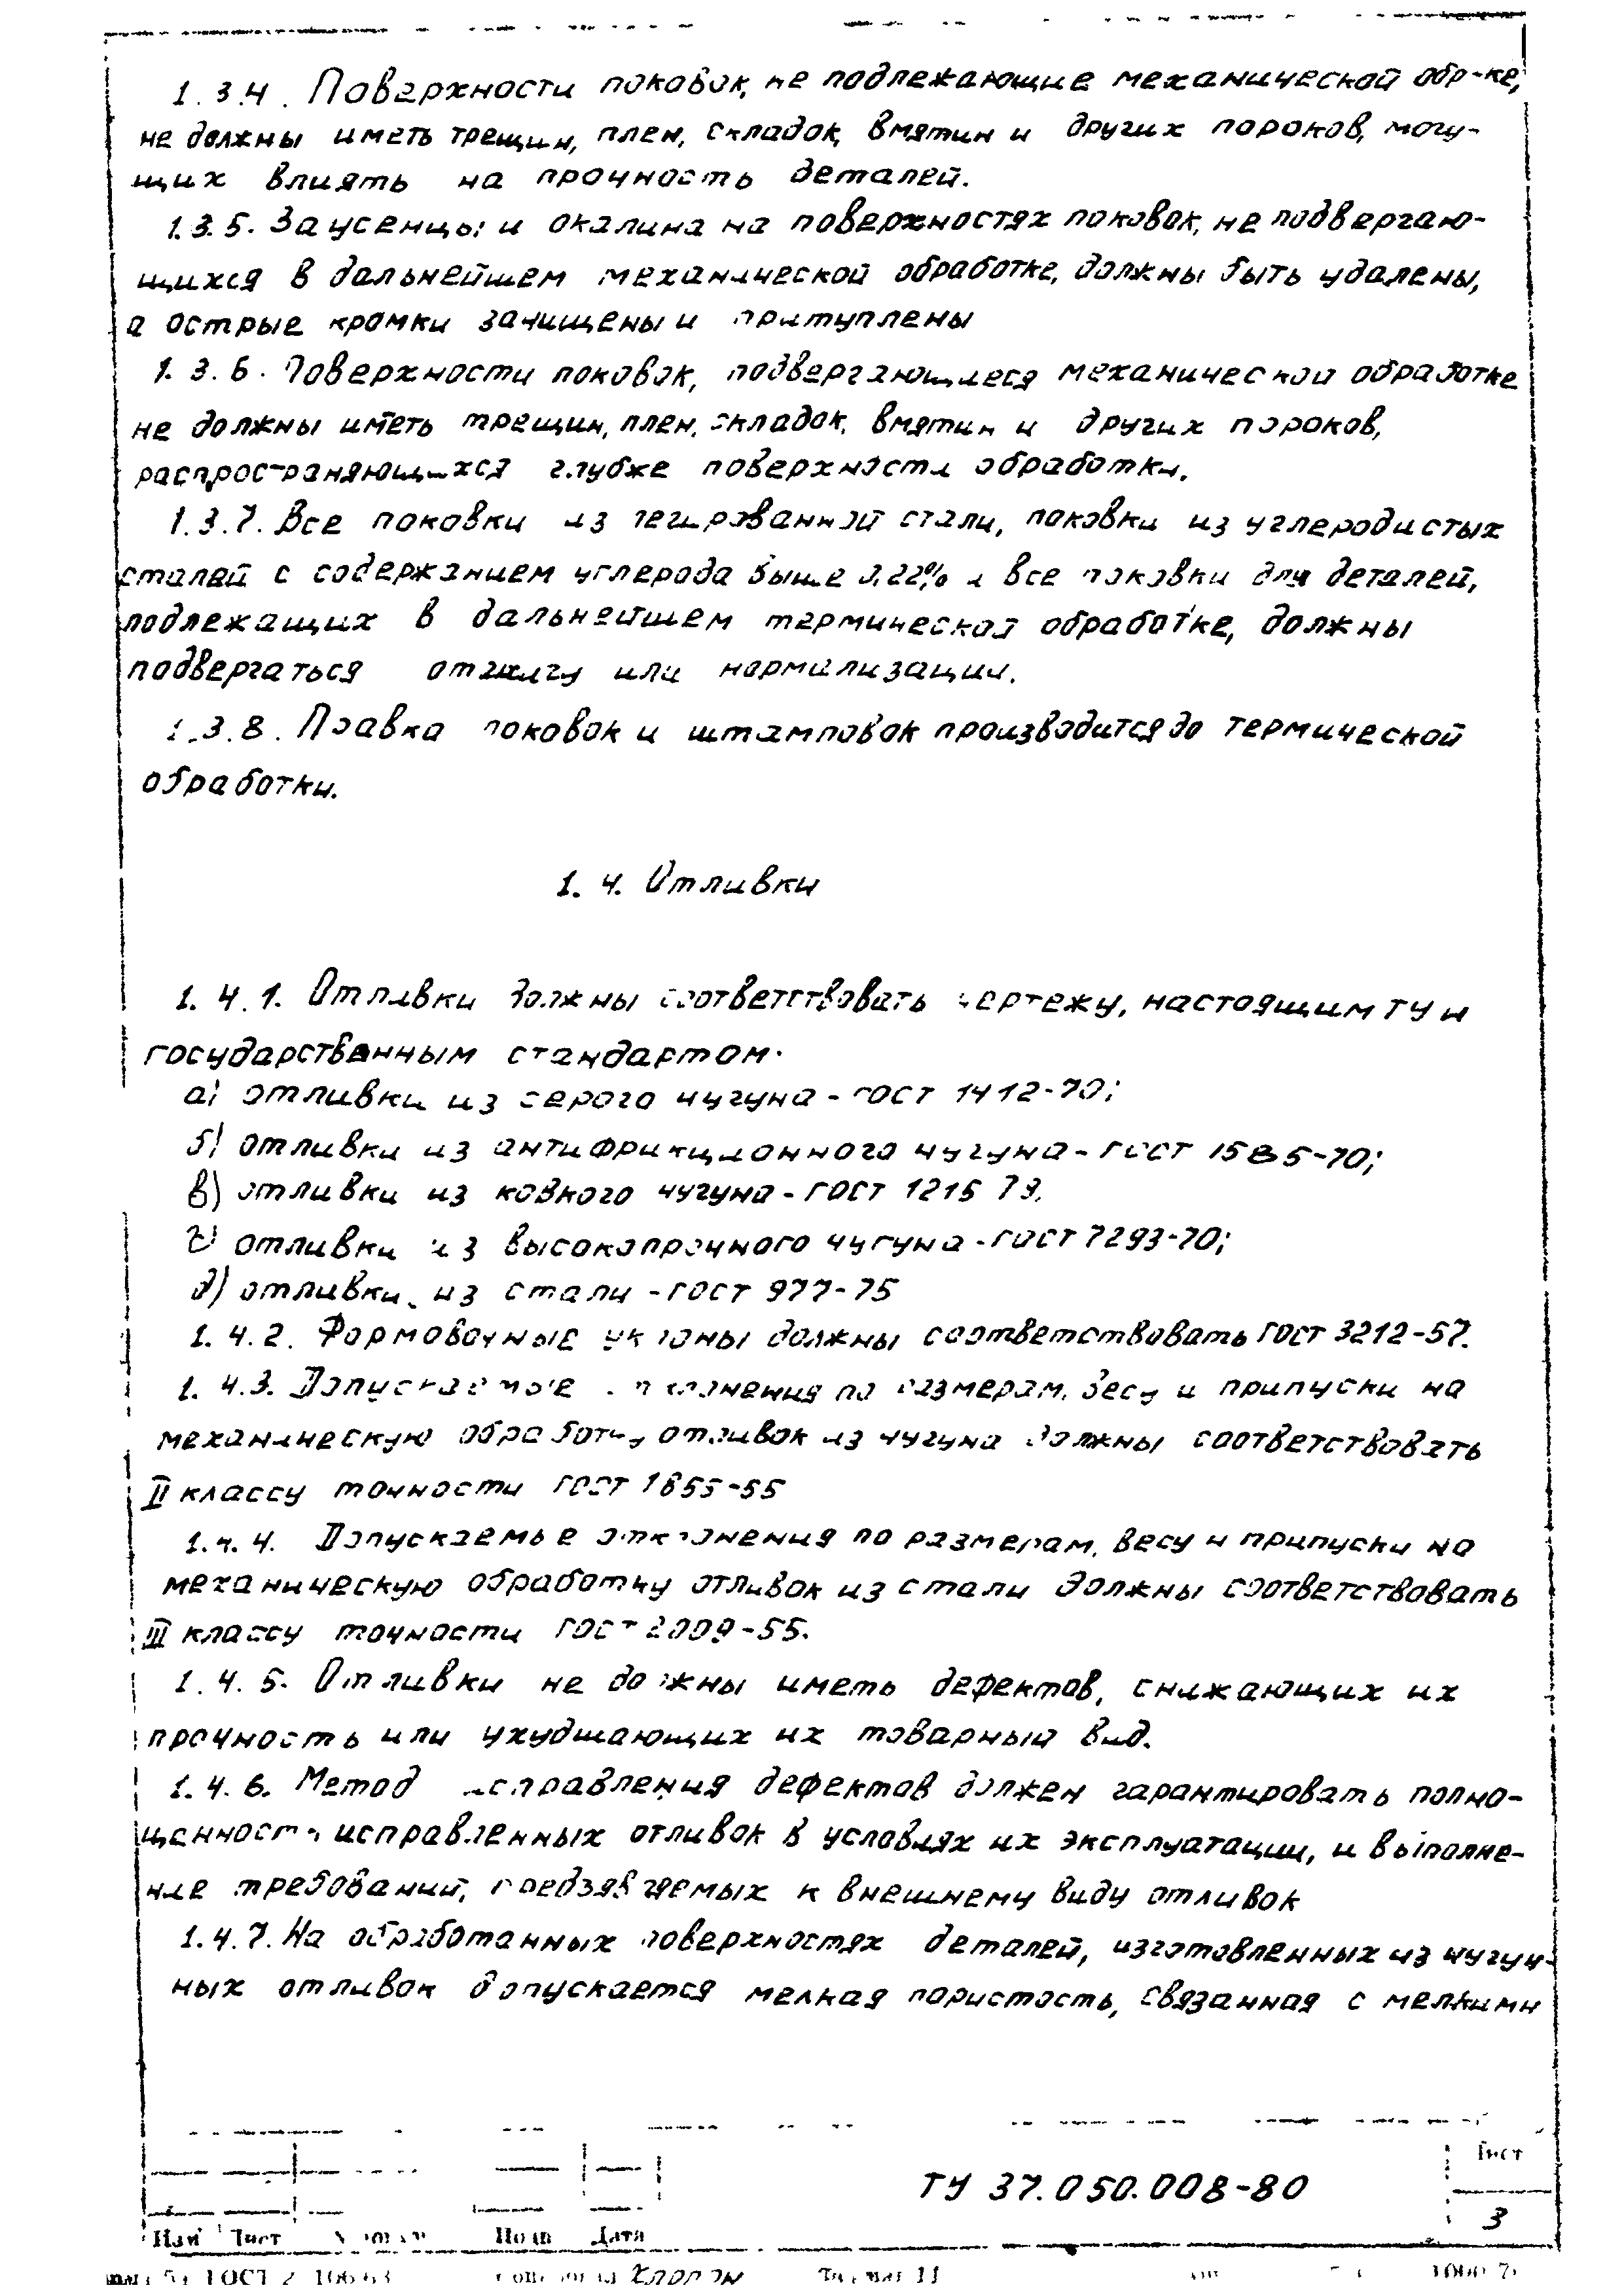 1.3.4. Поверхности поковок, не подлежающие механической обр-ке,
не должны иметь трещин, плен, складок, вмятин и других пороков, могу-
щих влиять на прочность деталей.
1.3.5. Заусенцы и окалина на поверхностях поковок, не подвергаю-
щихся в дальнейшем механической обработке, должны быть удалены,
а острые кромки зачищены и притуплены
1.3.6. Поверхности поковок, подвергающиеся механической обработке
не должны иметь трещин, плен, складок, вмятин и других пороков,
распространяющихся глубже поверхности обработки.
1.3.7. Все поковки из легированной стали, поковки из углеродистых
сталей с содержанием углерода выше 0,22% и все поковки для деталей,
подлежащих в дальнейшем термической обработке, должны
подвергаться отжигу или нормализации.
1.3.8. Правка поковок и штамповок производится до термической
обработки.
1.4. Отливки
1.4.1. Отливки должны соответствовать чертежу, настоящим ТУ и
государственным стандартом.
а) отливки из серого чугуна - ГОСТ 1412-70;
б) отливки из антифрикционного чугуна - ГОСТ 1585-70;
в) отливки из ковкого чугуна - ГОСТ 1215 79.
г) отливки из высокопрочного чугуна - ГОСТ 7293-70;
д) отливки из стали - ГОСТ 977-75
1.4.2. Формовочные уклоны должны соответствовать ГОСТ 3212-57.
1.4.3. Допускаемые отклонения по размерам, весу и припуски на
механическую обработку отливок из чугуна должны соответствовать
II классу точности ГОСТ 1855-55
1.4.4. Допускаемые отклонения по размерам, весу и припуски на
механическую обработку отливок из стали должны соответствовать
III классу точности ГОСТ 2009-55.
1.4.5. Отливки не должны иметь дефектов, снижающих их
прочность или ухудшающих их товарный вид.
1.4.6. Метод исправления дефектов должен гарантировать полно-
ценность исправленных отливок в условиях их эксплуатации, и выполне-
ние требований, предъявляемых к внешнему виду отливок
1.4.7. На обработанных поверхностях деталей, изготовленных из чугун-
ных отливок допускается мелкая пористость, связанная с мелкими
Лист
ТУ 37.050.008-80
3
Изм Лист Подп Дата
ГОСТ 2 106-68